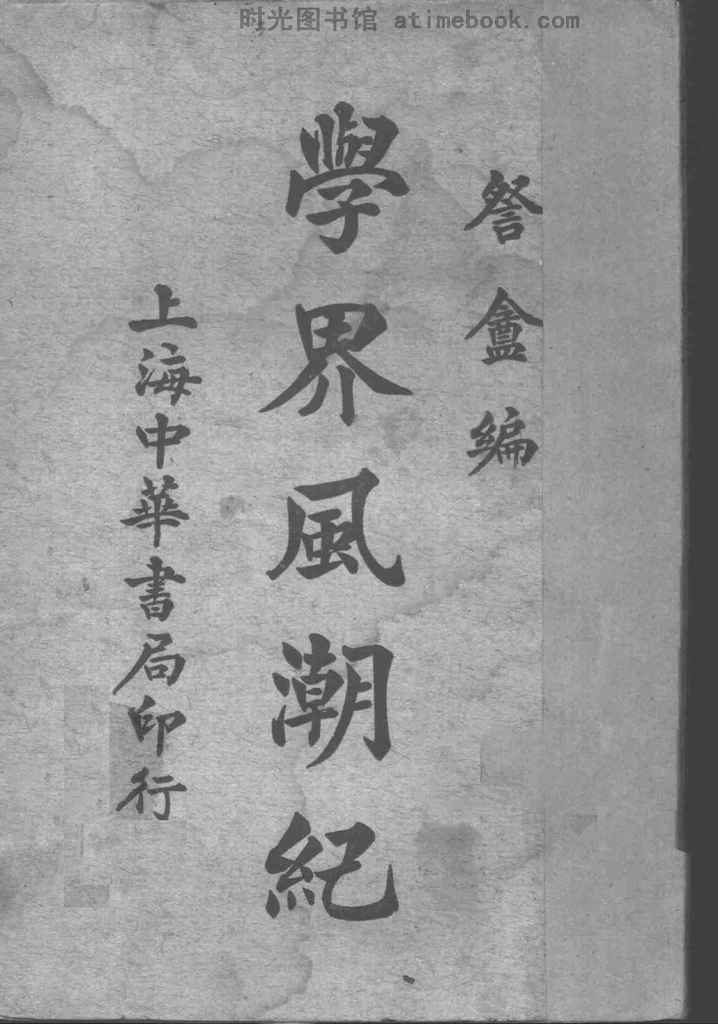 时光图书馆 atimebook.com
詧盦編
學界風潮紀
上海中華書局印行